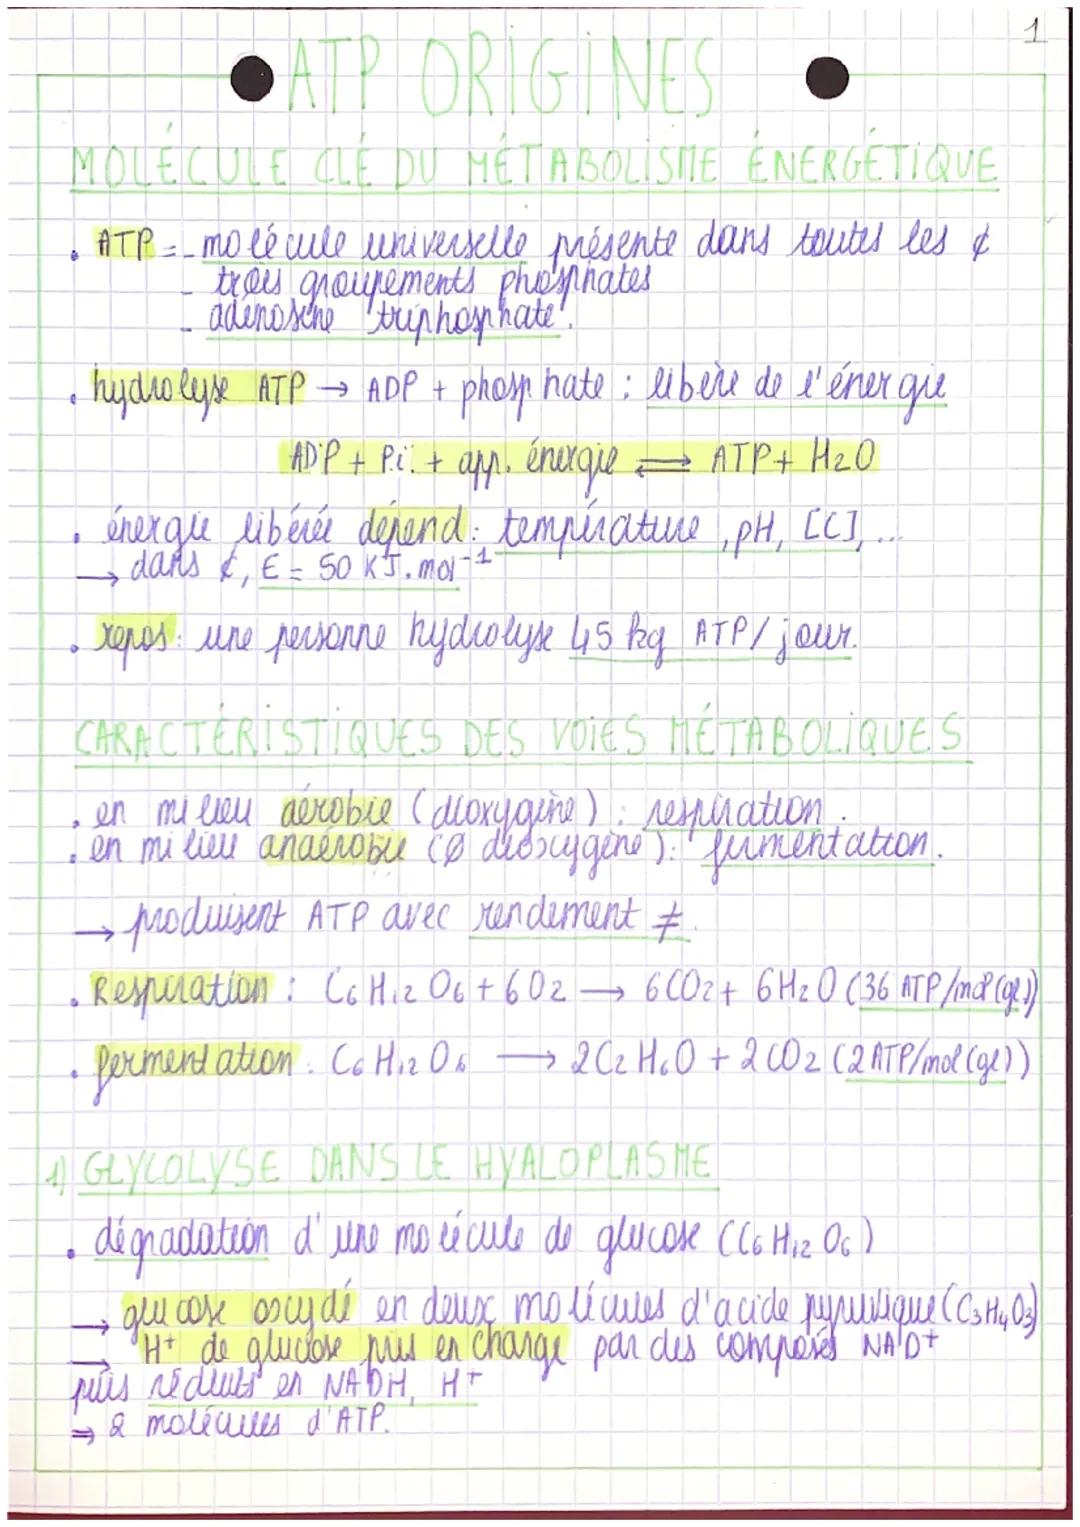 1
ATP ORIGINES
MOLÉCULE CLÉ DU MÉTABOLISME ÉNERGÉTIQUE
• ATP = - molécule universelle présente dans toutes les ¢
- trois groupements phosphates
- adénosine triphosphate.
• hydrolyse ATP → ADP + phosphate : libère de l'énergie
ADP + P.i. + app. énergie ⇌ ATP + H2O
• énergie libérée dépend : température, pH, [C], ...
→ dans ¢, E = 50 KJ.mol-1
• repos : une personne hydrolyse 45 kg ATP/jour.
CARACTÉRISTIQUES DES VOIES MÉTABOLIQUES
• en milieu aérobie (dioxygène) : respiration.
• en milieu anaérobie (Ø dioxygène) : fermentation.
→ produisent ATP avec rendement ≠.
• Respiration : C6H12O6 + 6O2 → 6CO2 + 6H2O (36 ATP/mol(gl))
• fermentation : C6H12O6 → 2C2H6O + 2CO2 (2ATP/mol(gl))
1) GLYCOLYSE DANS LE HYALOPLASME
• dégradation d'une molécule de glucose (C6H12O6)
→ glucose oxydé en deux molécules d'acide pyruvique (C3H4O3)
→ H+ de glucose pris en charge par des composés NAD+
puis réduits en NADH, H+
⇒ 2 molécules d'ATP.